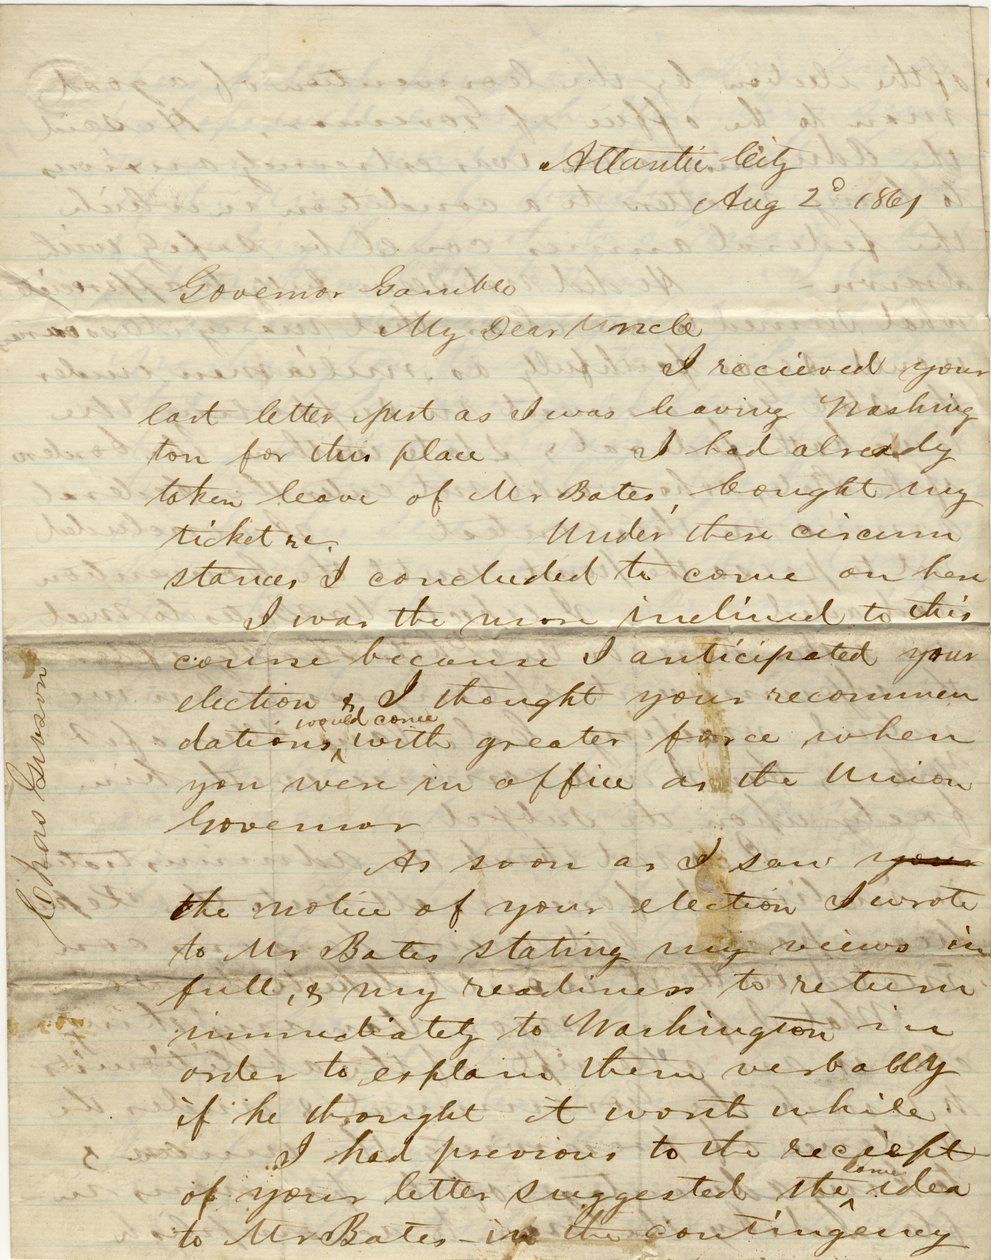 Atlantic City
Aug 2d 1861
Governor Gamble
My Dear Uncle
I recieved your
last letter just as I was leaving Washing
ton for this place I had already
taken leave of Mr Bates, bought my
ticket &c. Under these circum
stances I concluded to come on here
I was the more inclined to this
course because I anticipated your
election & I thought your recommen
dations, would come with greater force when
you were in office as the Union
Governor
As soon as I saw your
the notice of your election I wrote
to Mr Bates stating my views in
full, & my readiness to return
immediately to Washington in
order to explain them verbally
if he thought it worth while
I had previous to the reciept
of your letter suggested the same idea
to Mr Bates - in the contingency
Chas Gibson